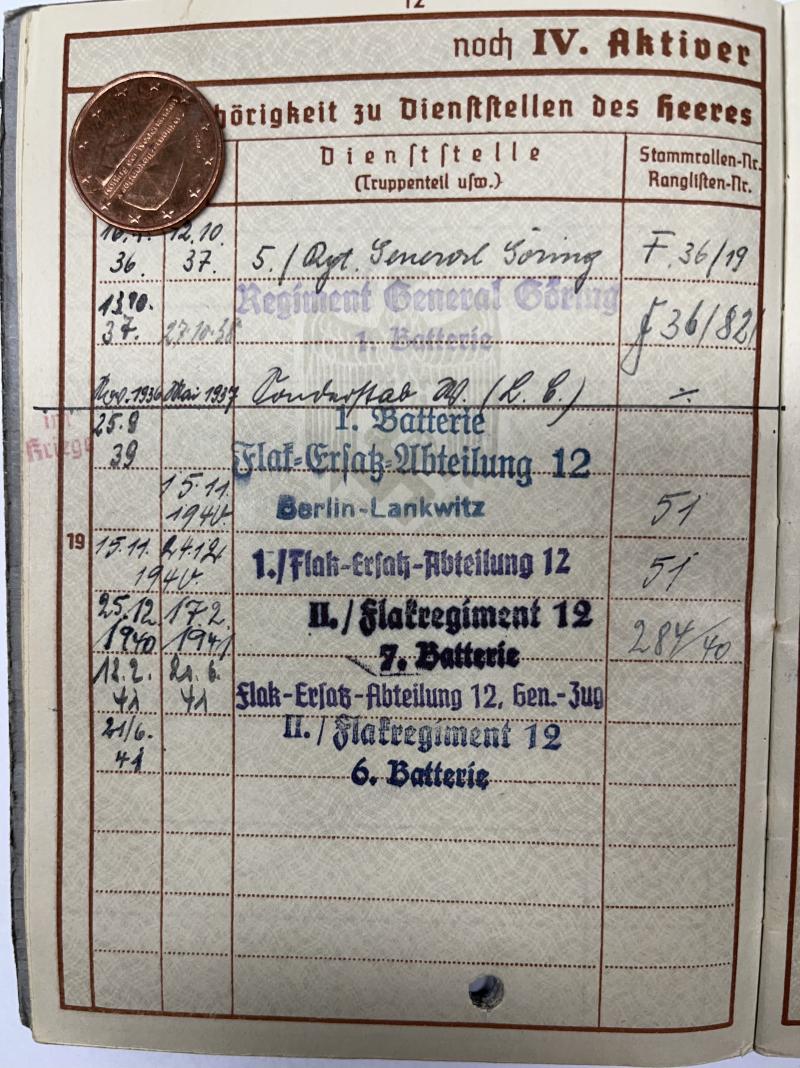 12
noch IV. Aktiver
hörigkeit zu Dienststellen des Heeres
Dienststelle
(Truppenteil usw.)
Stammrollen-Nr.
Ranglisten-Nr.
12.10.
36. 37. 5./Rgt. General Göring F. 36/19
13.10. Regiment General Göring
37. 27.10.38 1. Batterie 36/82
Nov. 1936 Mai 1937 Sonderstab W. (L. C.) ./.
im
Kriege
25.8 1. Batterie
39 Flak-Ersatz-Abteilung 12
15.11.
1940. Berlin-Lankwitz 51
19
15.11. 24.12.
1940. 1./Flak-Ersatz-Abteilung 12 51
25.12. 17.2. II./Flakregiment 12
1940 1941 7. Batterie 284/40
18.2. 20.6.
41 41 Flak-Ersatz-Abteilung 12, Gen.-Zug
21/6. II./Flakregiment 12
41 6. Batterie